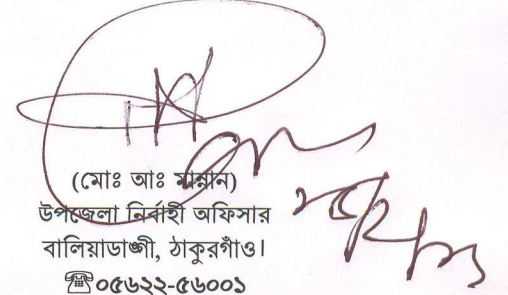 (মোঃ আঃ মান্নান)
উপজেলা নির্বাহী অফিসার
বালিয়াডাঙ্গী, ঠাকুরগাঁও।
☎০৫৬২২-৫৬০০১